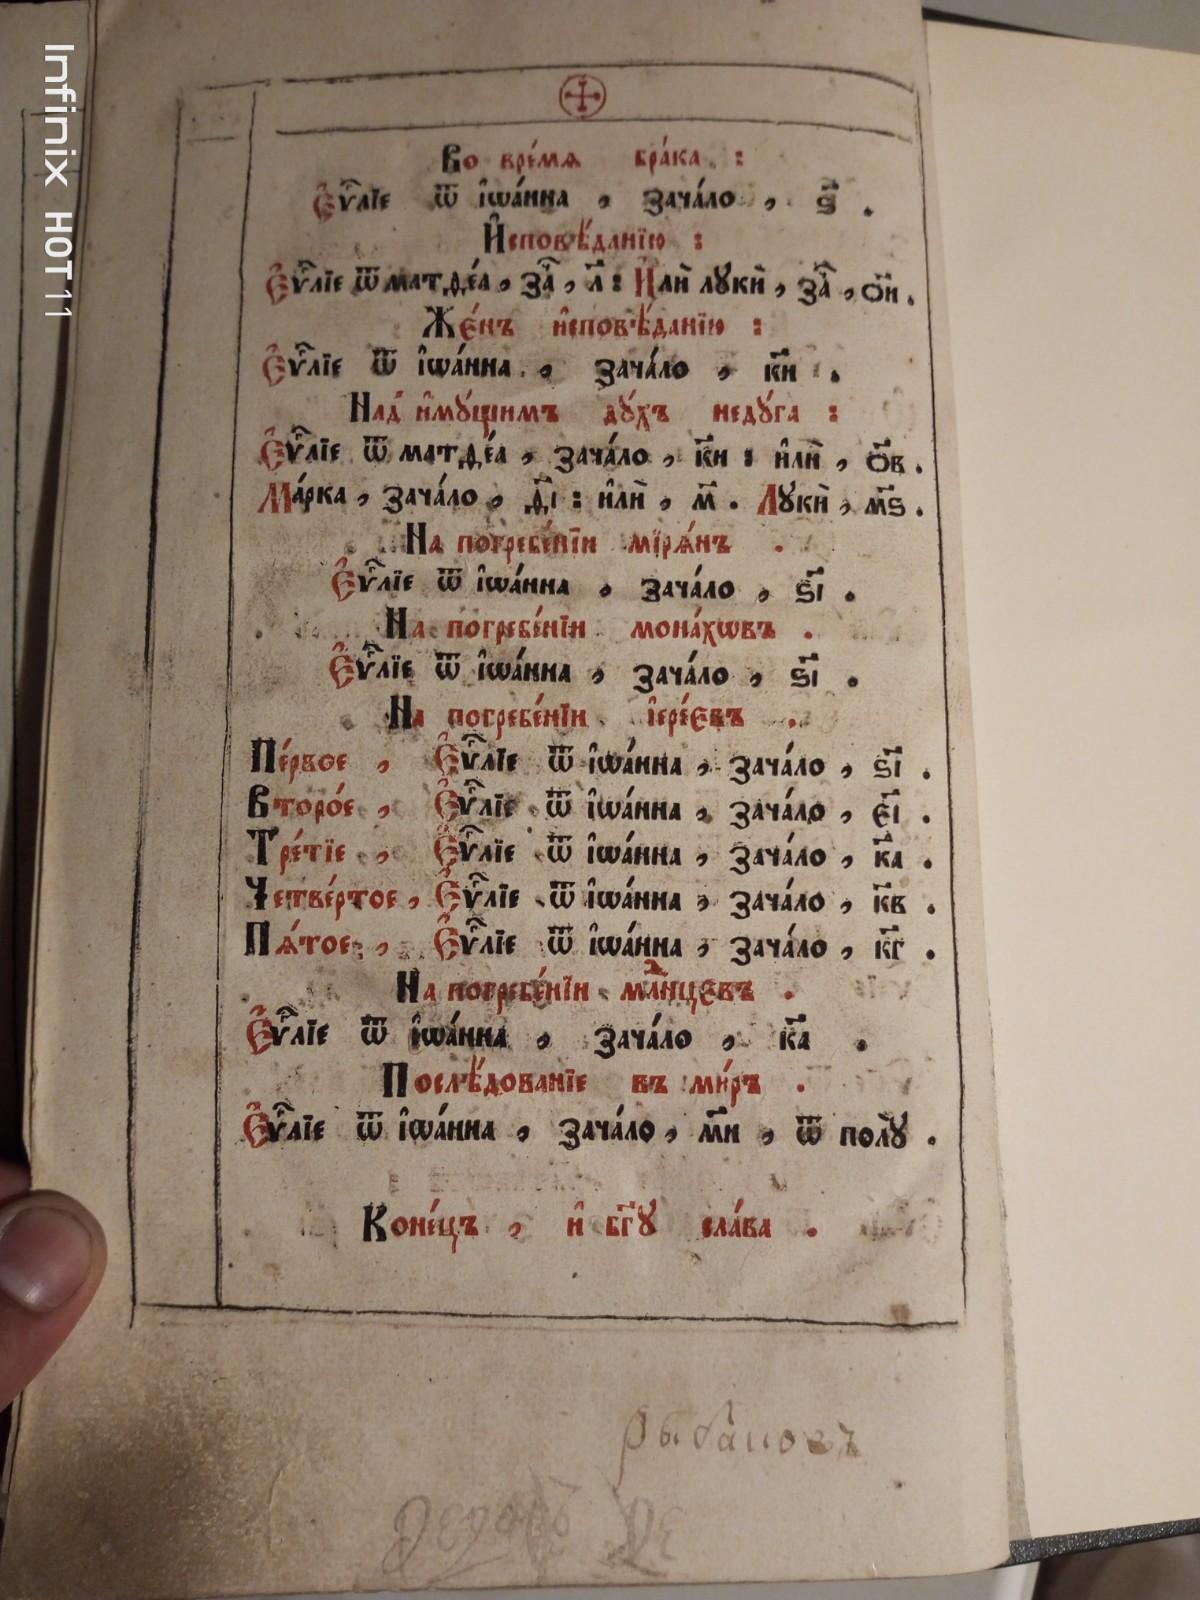 Во вре́мѧ бра́ка :
Є҆ѵⷢ҇лїе ѿ і҆ѡа́нна , зача́ло , ѕ҃ .
И҆сповѣ́данїю :
Є҆ѵⷢ҇лїе ѿ матѳе́а , за̑ , л҃ : И҆лѝ лꙋкѝ , за̑ , о҃и .
Же́нъ и҆сповѣ́данїю :
Є҆ѵⷢ҇лїе ѿ і҆ѡа́нна , зача́ло , к҃и .
Над̾ и҆мꙋ́щимъ дꙋ́хъ недꙋ́га :
Є҆ѵⷢ҇лїе ѿ матѳе́а , зача́ло , к҃и : и҆лѝ , о҃в .
Ма́рка , зача́ло , д҃і : и҆лѝ , м҃ . Лꙋкѝ , м҃ѕ .
На погребе́нїи мїрѧ́нъ .
Є҆ѵⷢ҇лїе ѿ і҆ѡа́нна , зача́ло , ѕ҃і .
На погребе́нїи мона́хѡвъ .
Є҆ѵⷢ҇лїе ѿ і҆ѡа́нна , зача́ло , ѕ҃і .
На погребе́нїи і҆ере́євъ .
Пе́рвое , Є҆ѵⷢ҇лїе ѿ і҆ѡа́нна , зача́ло , ѕ҃і .
Второ́е , Є҆ѵⷢ҇лїе ѿ і҆ѡа́нна , зача́ло , є҃і .
Тре́тїе , Є҆ѵⷢ҇лїе ѿ і҆ѡа́нна , зача́ло , к҃а .
Четве́ртое , Є҆ѵⷢ҇лїе ѿ і҆ѡа́нна , зача́ло , к҃в .
Пѧ́тое , Є҆ѵⷢ҇лїе ѿ і҆ѡа́нна , зача́ло , к҃г .
На погребе́нїи млⷣнцєвъ .
Є҆ѵⷢ҇лїе ѿ і҆ѡа́нна , зача́ло , к҃а .
Послѣ́дованїе въ ми́ръ .
Є҆ѵⷢ҇лїе ѿ і҆ѡа́нна , зача́ло , м҃и , ѿ полꙋ̀ .
Коне́цъ , и҆ бг҃ꙋ сла́ва .
Infinix HOT 11